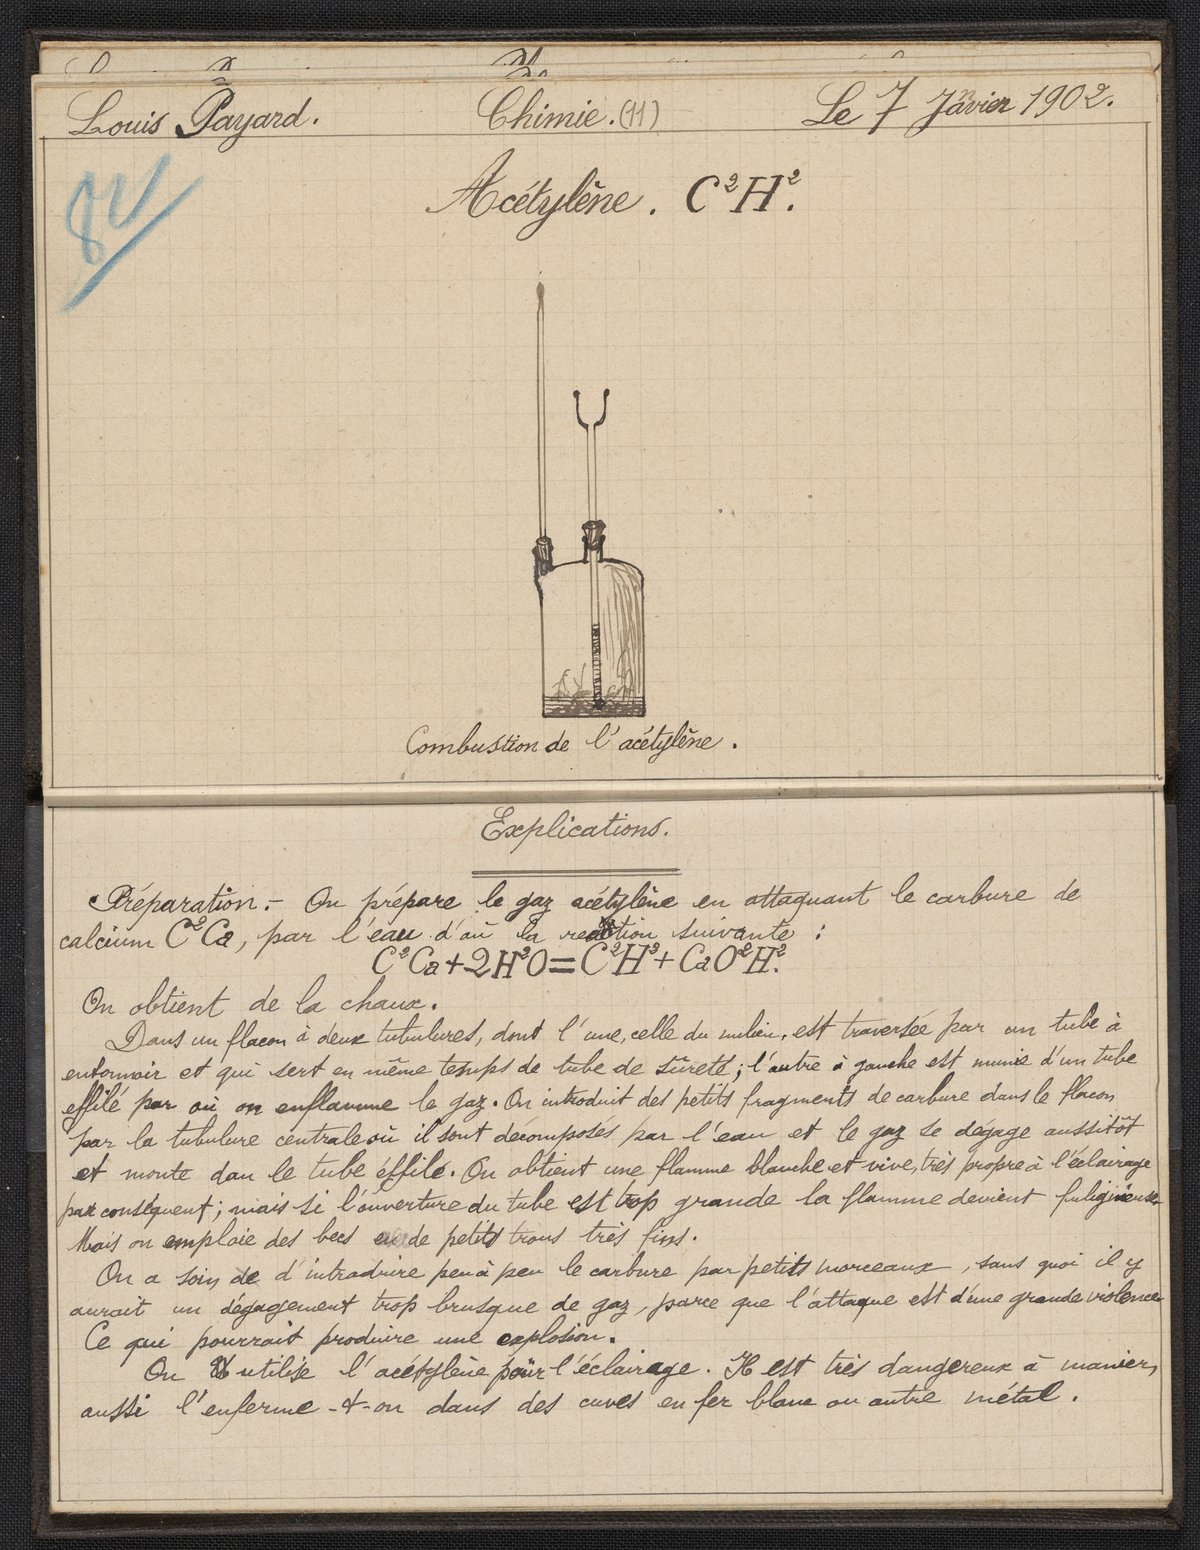 Louis Payard.
Chimie. (11)
Le 7 Janvier 1902.
Acétylène. C²H².
Combustion de l'acétylène.
Explications.
Préparation.- On prépare le gaz acétylène en attaquant le carbure de
calcium C²Ca, par l'eau d'où la reaction suivante :
C²Ca+2H²O=C²H²+CaO²H².
On obtient de la chaux.
Dans un flacon à deux tubulures, dont l'une, celle du milieu, est traversée par un tube à
entonnoir et qui sert en même temps de tube de sûreté; l'autre à gauche est munie d'un tube
effilé par où on enflamme le gaz. On introduit des petits fragments de carbure dans le flacon
par la tubulure centrale où il sont décomposés par l'eau et le gaz se dégage aussitôt
et monte dan le tube éffilé. On obtient une flamme blanche et vive, très propre à l'éclairage
par conséquent; mais si l'ouverture du tube est trop grande la flamme devient fuligineuse
Mais on emploie des becs de petits trous très fins.
On a soin de d'introduire peu à peu le carbure par petits morceaux, sans quoi il y
aurait un dégagement trop brusque de gaz, parce que l'attaque est d'une grande violence
Ce qui pourrait produire une explosion.
On utilise l'acétylène pour l'éclairage. Il est très dangereux à manier,
aussi l'enferme-t-on dans des cuves en fer blanc ou autre métal.